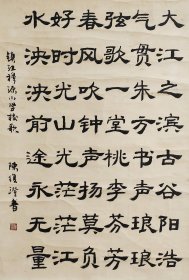 大江之滨古谷阳浩
气贯朱方书声琅琅
弦歌一堂桃李芬芳
春风吹钟声扬莫负
好时光山光茫茫江
水泱泱前途永无量
镇江穆源小学校歌
书